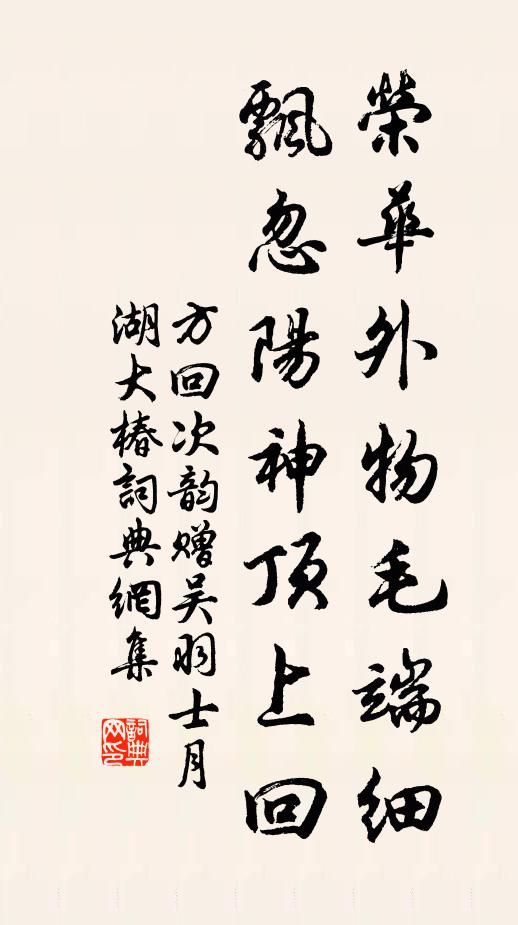 榮華外物毛端細
飄忽陽神頂上回
方回次韵赠吴羽士月
湖大椿詞典網集
詞典
网印